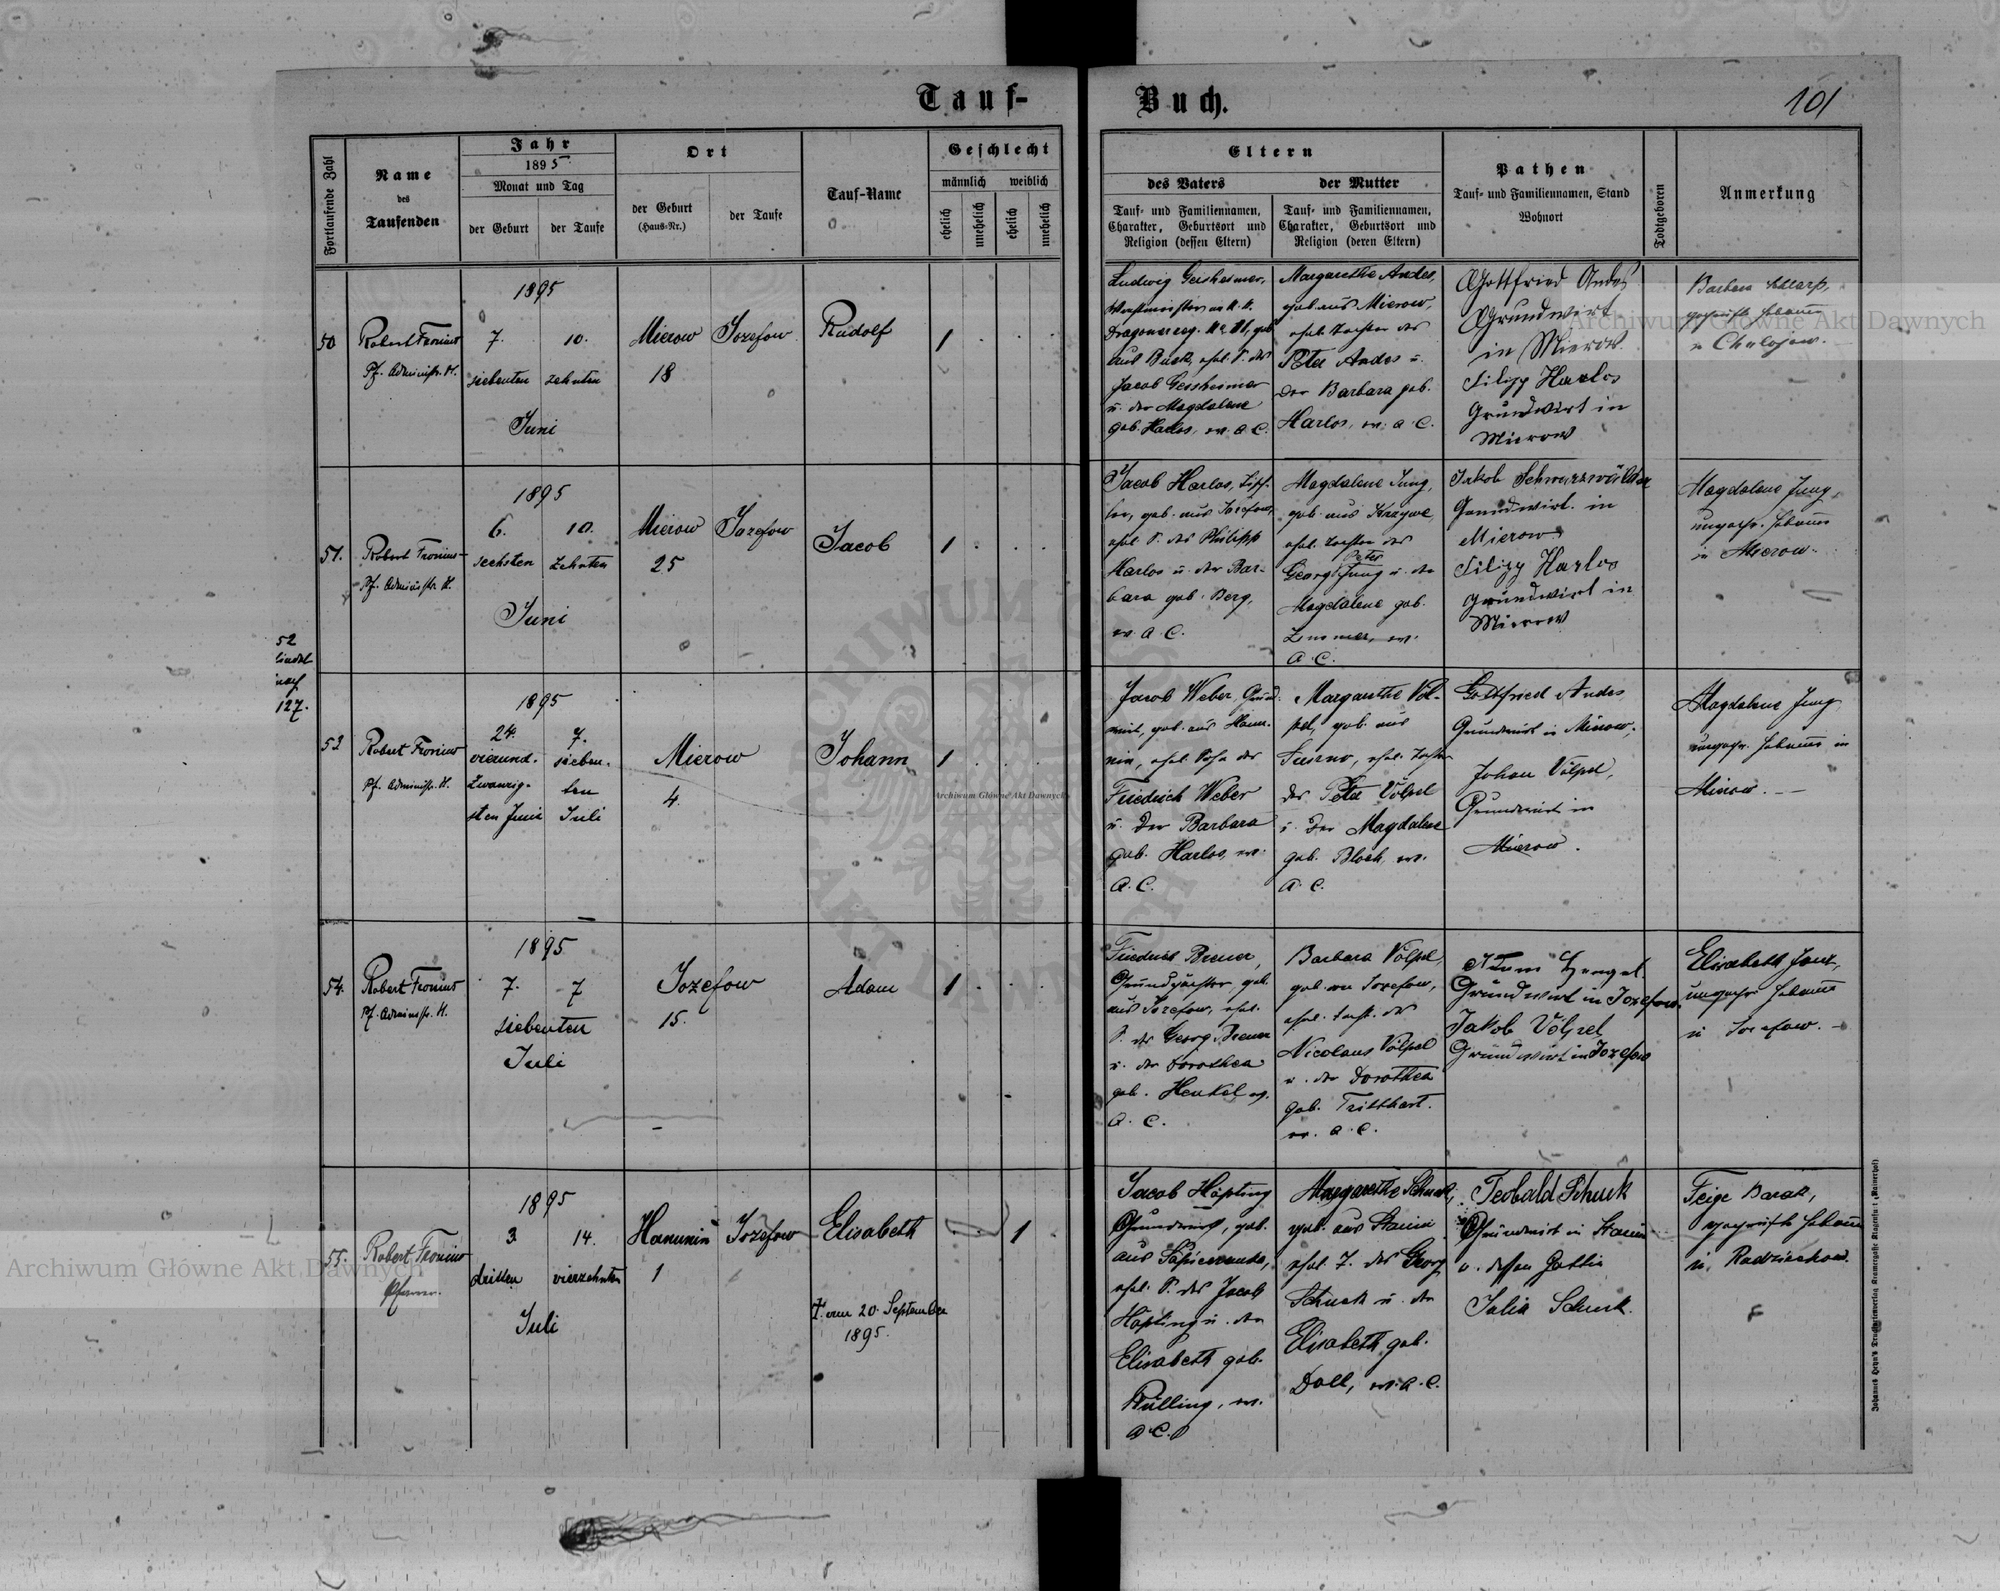 Tauf-
Buch.
101
Fortlaufende Zahl
Name
des
Taufenden
Jahr
1895
Monat und Tag
der Geburt
der Taufe
Ort
der Geburt
(Haus-Nr.)
der Taufe
Tauf-Name
Geschlecht
männlich
weiblich
ehelich
unehelich
ehelich
unehelich
Eltern
des Vaters
Tauf- und Familiennamen,
Charakter, Geburtsort und
Religion (dessen Eltern)
der Mutter
Tauf- und Familiennamen,
Charakter, Geburtsort und
Religion (deren Eltern)
Pathen
Tauf- und Familiennamen, Stand
Wohnort
Todtgeboren
Anmerkung
50
Robert Fronius
Pf. Administr. H.
1895
7.
10.
siebenten
zehnten
Juni
Mierow
18
Jozefow
Rudolf
1
Ludwig Geisheimer,
aus Busk, ehel. S. des
Jacob Geisheimer
u. der Magdalene
geb. Harlos, ev. A. C.
Margarethe Andes,
geb. aus Mierow,
ehel. Tochter des
Peter Andes u.
der Barbara geb.
Harlos, ev. A. C.
Gottfried Andes
Grundwirt
in Mierow
Filipp Harlos
Grundwirt in
Mierow
Barbara
geprüfte Hebamme
in Cholojow.
51.
Robert Fronius
Pf. Administr. H.
1895
6.
10.
sechsten
zehnten
Juni
Mierow
25
Jozefow
Jacob
1
Jacob Harlos,
geb. aus Jozefow,
ehel. S. des Philipp
Harlos u. der Bar-
bara geb. Berg,
ev. A. C.
Magdalene Jung,
geb. aus Krzywe,
ehel. Tochter des
Peter
Georg Jung u. der
Magdalene geb.
ev.
A. C.
Jakob Schwarzwälder
Grundwirt in
Mierow
Filipp Harlos
Grundwirt in
Mierow
Magdalene Jung,
ungepr. Hebamme
in Mierow.
52
findet
nach
127.
53
Robert Fronius
Pf. Administr. H.
1895
24.
7.
vierund-
sieben-
zwanzig-
ten
sten Juni
Juli
Mierow
4.
Johann
1
Jacob Weber, Grund-
wirt, geb. aus Hanu-
nin, ehel. Sohn des
Friedrich Weber
u. der Barbara
geb. Harlos, ev.
A. C.
Margarethe Völ-
pel, geb. aus
ehel. Tochter
des Peter Völpel
u. der Magdalene
geb. Bloch, ev.
A. C.
Gottfried Andes
Grundwirt in Mierow,
Johan Völpel,
Grundwirt in
Mierow.
Magdalene Jung,
ungepr. Hebamme in
Mierow.
54.
Robert Fronius
Pf. Administr. H.
1895
7.
7
siebenten
Juli
Jozefow
15.
Adam
1
Friedrich Breuer,
Grundpächter, geb.
aus Jozefow, ehel.
S. des Georg Breuer
u. der Dorothea
geb. Henkel ev.
A. C.
Barbara Völpel,
geb. in Jozefow,
ehel. Tocht. des
Nicolaus Völpel
u. der Dorothea
geb. Tritthart.
ev. A. C.
Adam Hengel
Grundwirt in Jozefow.
Jakob Völpel
Grundwirt in Jozefow
Elisabeth
ungepr. Hebamme
in Jozefow.
55.
Robert Fronius
Pfarrer.
1895
3
14.
dritten
vierzehnten
Juli
Hanunin
1
Jozefow
Elisabeth
† am 20. September
1895.
1
Jacob Höpting
Grundwirt, geb.
aus
ehel. S. des Jacob
Höpting u. der
Elisabeth geb.
Rülling, ev.
A. C.
Margarethe Schuck,
geb. aus Stanin
ehel. T. des Georg
Schuck u. der
Elisabeth geb.
Doll, ev. A. C.
Teobald Schuck
Grundwirt in Stanin
u. dessen Gattin
Julia Schuck.
Feige Barak,
geprüfte Hebamme
in Radziechow.
Johannes Heyn's Druckereiverlag
Archiwum Główne Akt Dawnych
Archiwum Główne Akt Dawnych
Archiwum Główne Akt Dawnych